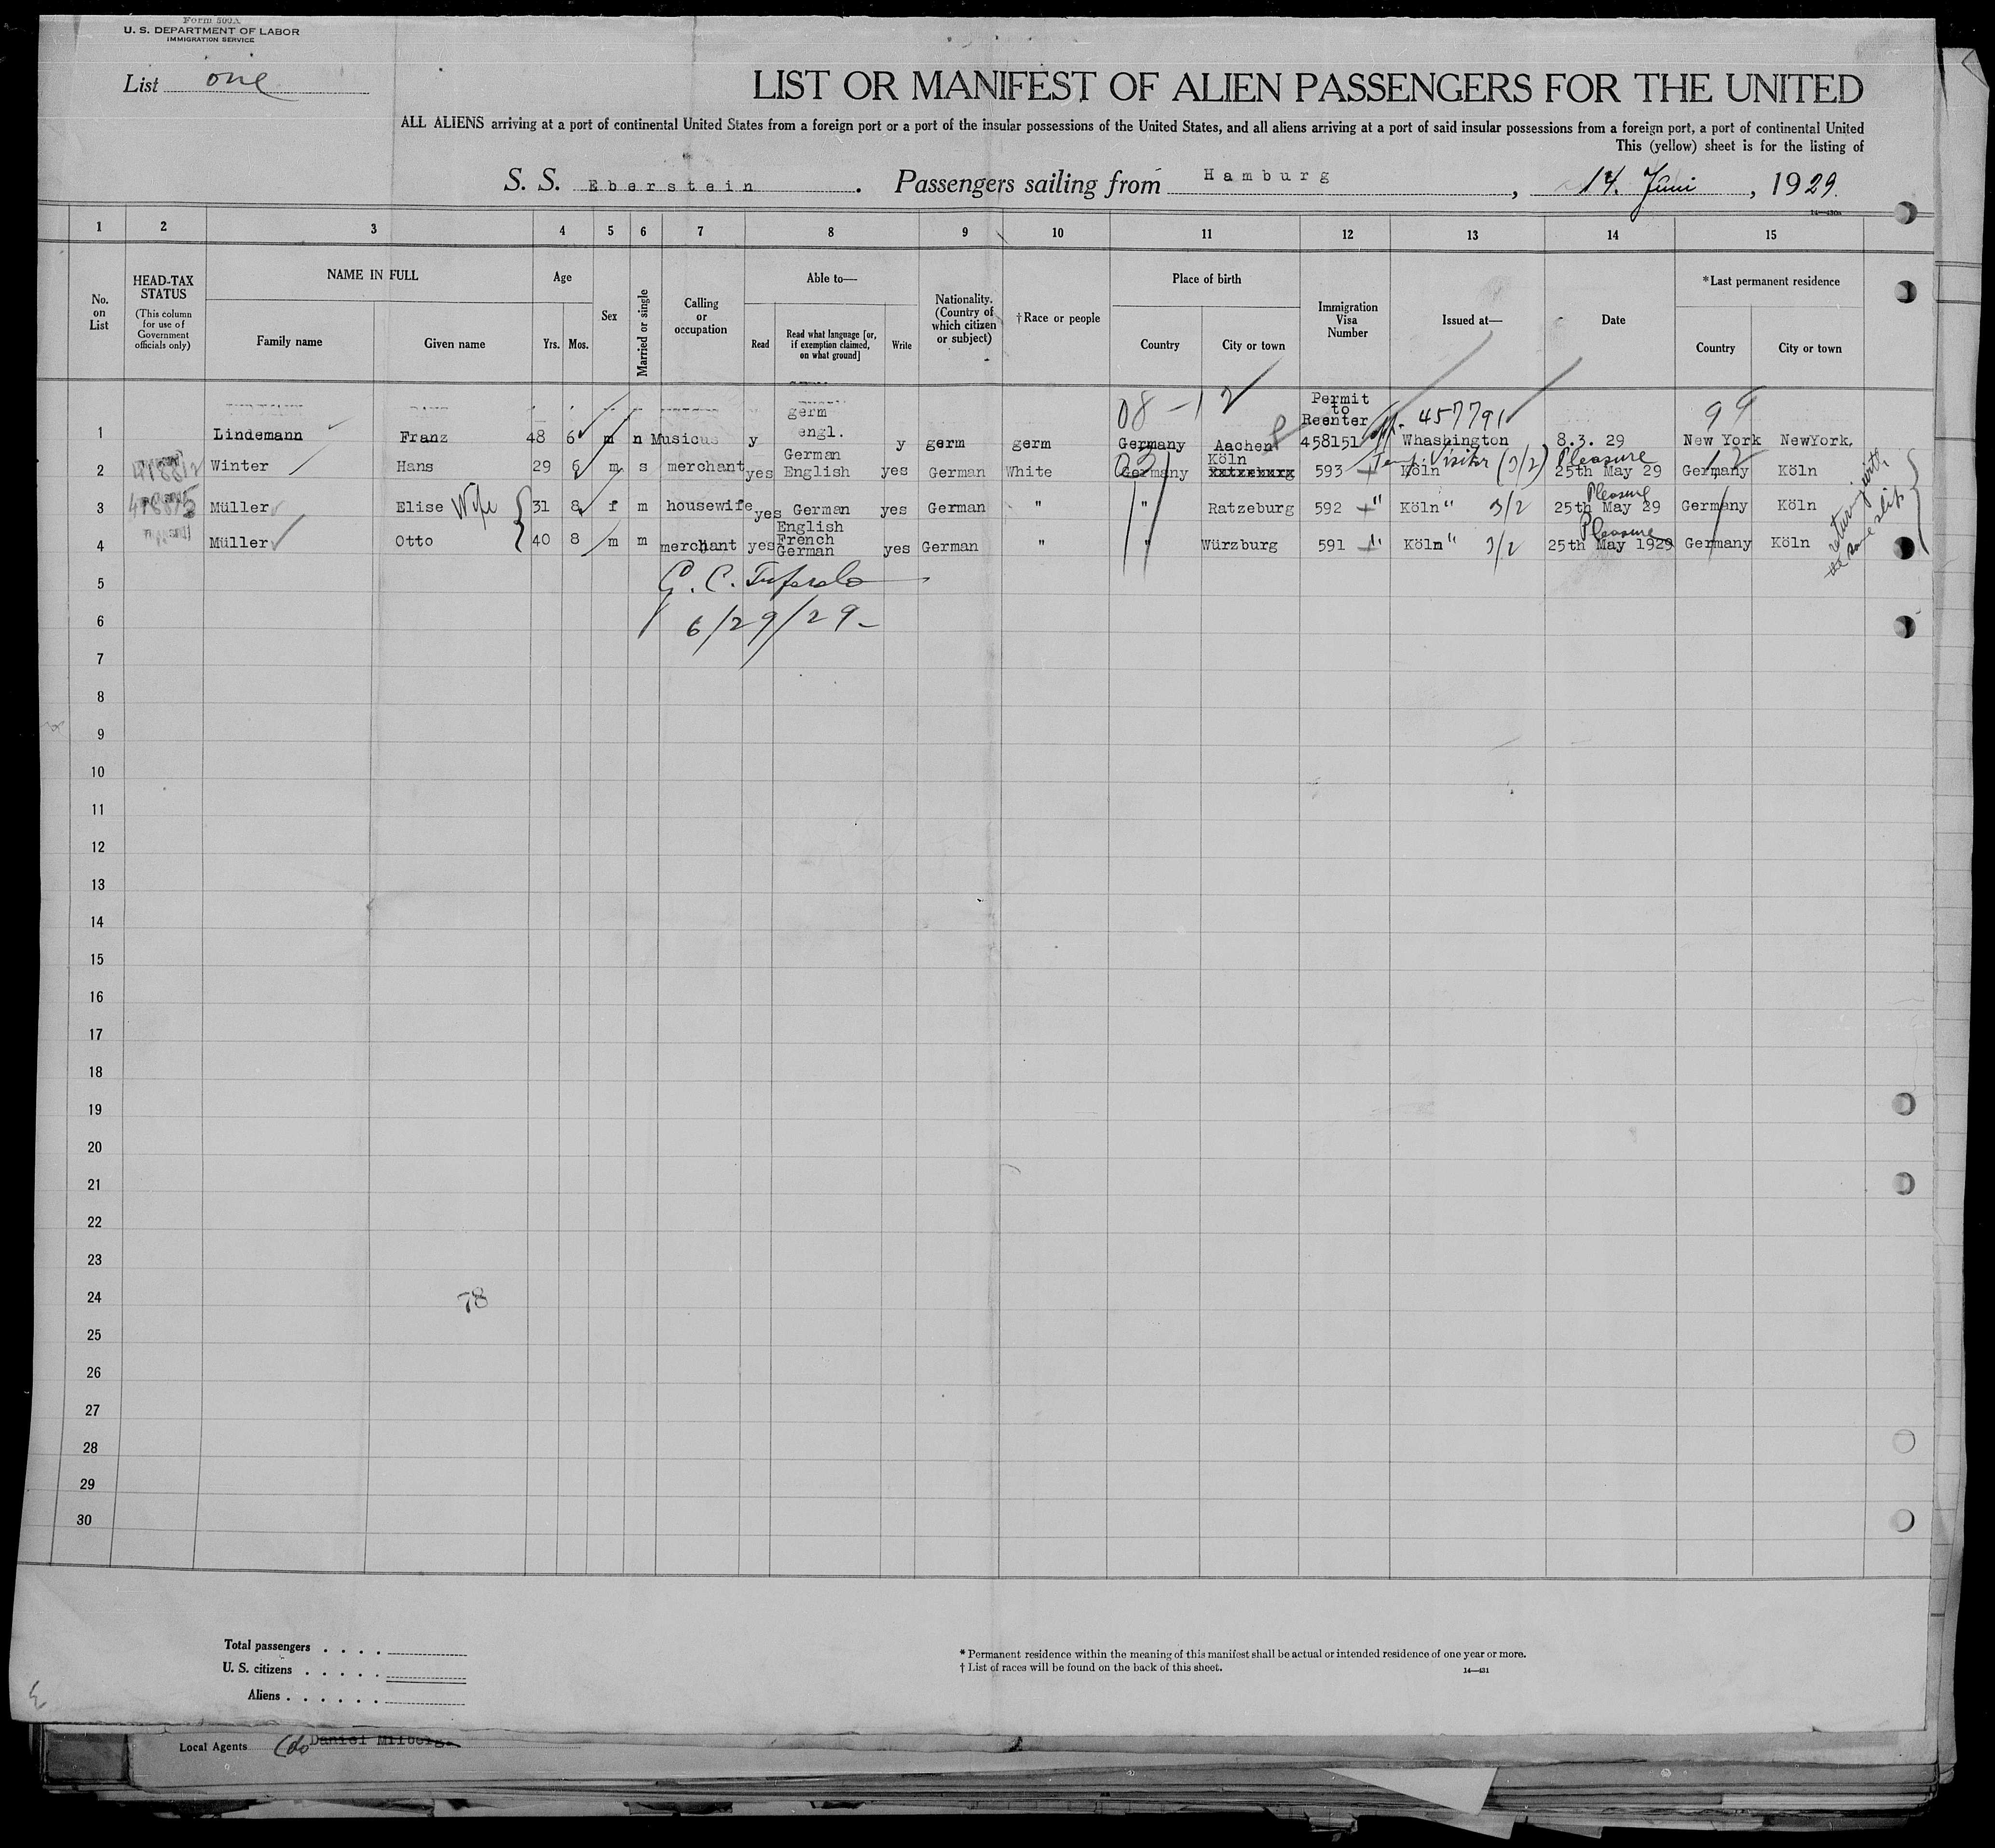 Form 500A
U. S. DEPARTMENT OF LABOR
IMMIGRATION SERVICE
List one
LIST OR MANIFEST OF ALIEN PASSENGERS FOR THE UNITED
ALL ALIENS arriving at a port of continental United States from a foreign port or a port of the insular possessions of the United States, and all aliens arriving at a port of said insular possessions from a foreign port, a port of continental United
This (yellow) sheet is for the listing of
S. S. Eberstein. Passengers sailing from Hamburg, 14. Juni, 1929.
14—430a
1 2 3 4 5 6 7 8 9 10 11 12 13 14 15
No. on List
HEAD-TAX STATUS (This column for use of Government officials only)
NAME IN FULL
Family name Given name
Age
Yrs. Mos.
Sex
Married or single
Calling or occupation
Able to—
Read
Read what language [or, if exemption claimed, on what ground]
Write
Nationality. (Country of which citizen or subject)
†Race or people
Place of birth
Country City or town
Immigration Visa Number
Issued at—
Date
*Last permanent residence
Country City or town
08-12 Permit to Reenter 457791 99
1 Lindemann Franz 48 6 m n Musicus y germ engl. y germ germ Germany Aachen 458151 Whashington 8.3. 29 New York NewYork.
2 Winter Hans 29 6 m s merchant yes German English yes German White Germany Köln 593 Temp. Visitor (3/2) Köln Pleasure 25th May 29 Germany Köln
3 Müller Elise Wife 31 8 f m housewife yes German yes German " " Ratzeburg 592 " Köln " 3/2 Pleasure 25th May 29 Germany Köln
4 Müller Otto 40 8 m m merchant yes English French German yes German " " Würzburg 591 " Köln " 3/2 Pleasure 25th May 1929 Germany Köln
5
6 6/29/29
7
8
9
10
11
12
13
14
15
16
17
18
19
20
21
22
23
24 78
25
26
27
28
29
30
Total passengers . . . .
U. S. citizens . . . . .
Aliens . . . . . .
* Permanent residence within the meaning of this manifest shall be actual or intended residence of one year or more.
† List of races will be found on the back of this sheet.
14—431
Local Agents